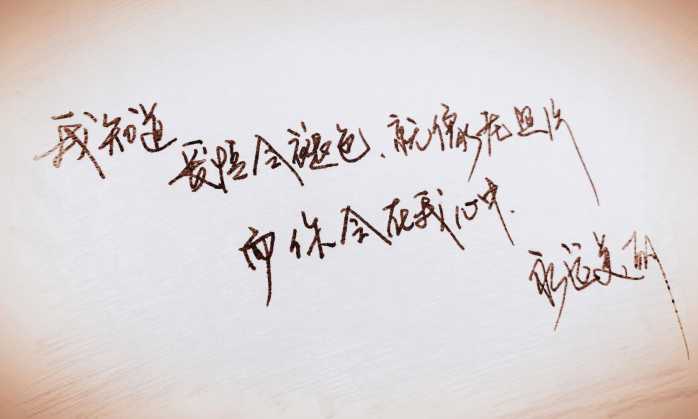 我知道
爱情会褪色、就像老照片
而你会在我心中.
永远美丽